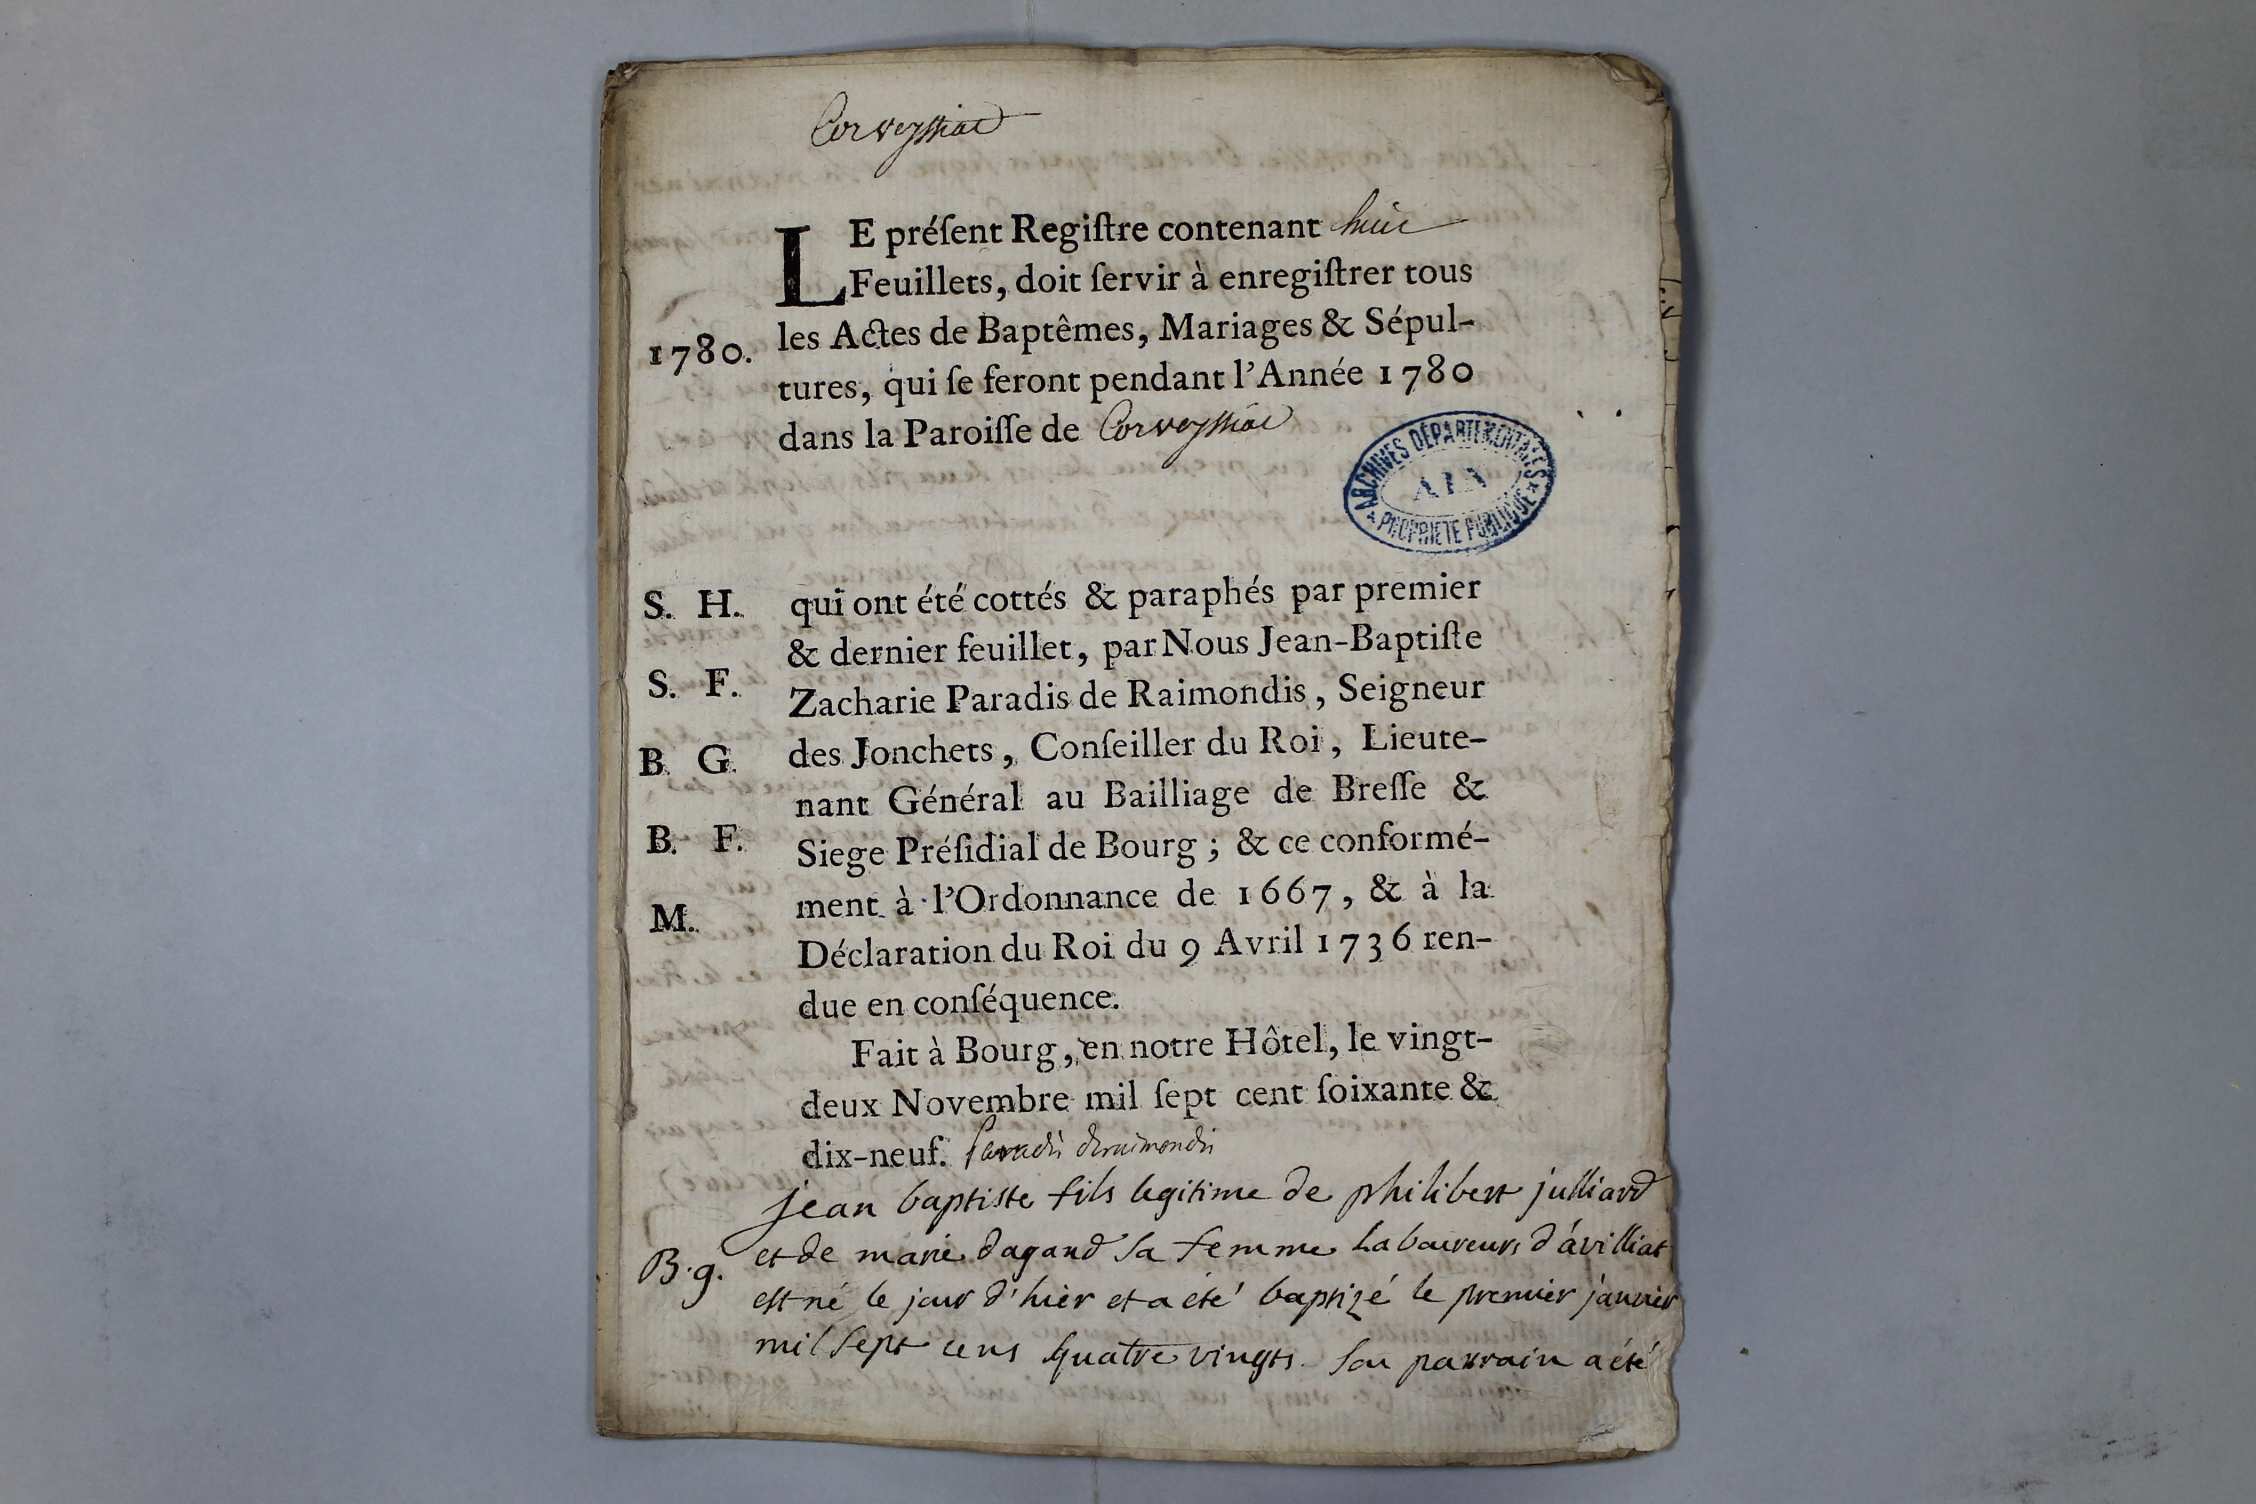 Corveyssiat
LE préſent Regiſtre contenant huit
Feuillets, doit ſervir à enregiſtrer tous
les Actes de Baptêmes, Mariages & Sépul-
1780.
tures, qui ſe feront pendant l'Année 1780
dans la Paroiſſe de Corveyssiat
ARCHIVES DÉPARTEMENTALES
AIN
* PROPRIETE PUBLIQUE *
S. H.
qui ont été cottés & paraphés par premier
& dernier feuillet, par Nous Jean-Baptiſte
S. F.
Zacharie Paradis de Raimondis, Seigneur
B. G.
des Jonchets, Conſeiller du Roi, Lieute-
nant Général au Bailliage de Breſſe &
B. F.
Siege Préſidial de Bourg; & ce conformé-
M.
ment à l'Ordonnance de 1667, & à la
Déclaration du Roi du 9 Avril 1736 ren-
due en conſéquence.
Fait à Bourg, en notre Hôtel, le vingt-
deux Novembre mil ſept cent ſoixante &
dix-neuf. Paradis deraimondis
jean baptiste fils legitime de philibert julliard
B.g.
et de marie dagand sa femme laboureurs d'avilliat
est né le jour d'hier et a été baptizé le premier janvier
mil sept cens quatre vingts. son parrain a été